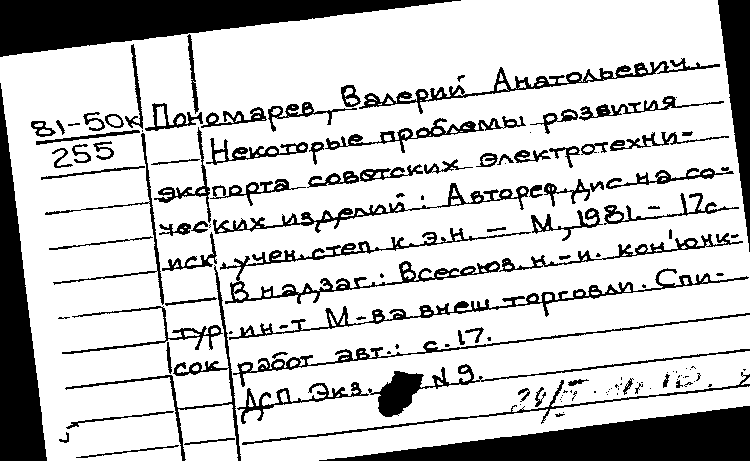 81-50к Пономарев, Валерий Анатольевич.
255 Некоторые проблемы развития
экспорта советских электротехни-
ческих изделий: Автореф. дис. на со-
иск. учен. степ. к. э. н. — М., 1981. — 17с.
В надзаг.: Всесоюз. н.-и. кон'юнк-
тур. ин-т М-ва внеш. торговли. Спи-
сок работ авт.: с. 17.
ДСП. Экз. N 9.